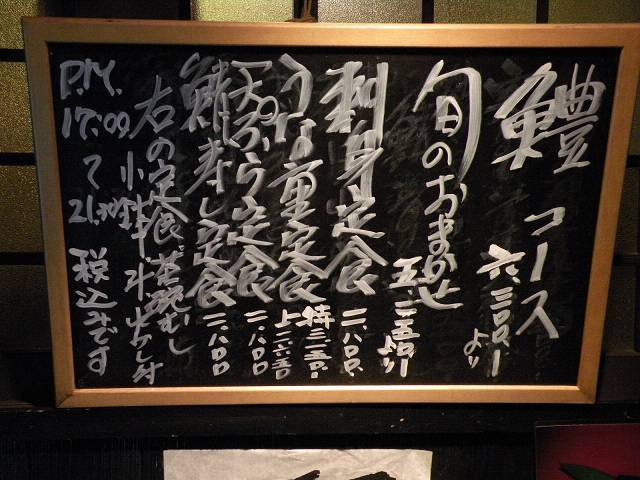 鱧コース
六、三〇〇、ー より
旬のおまかせ
五、二五〇、ー より
刺身定食 二、八〇〇、
うな重定食 特三、一五〇、 上二、六五〇
天ぷら定食 二、八〇〇
鯖寿し定食 二、八〇〇
右の定食、茶碗むし
小鉢、汁 付
P.M. 17:00〜21:30 税込みです